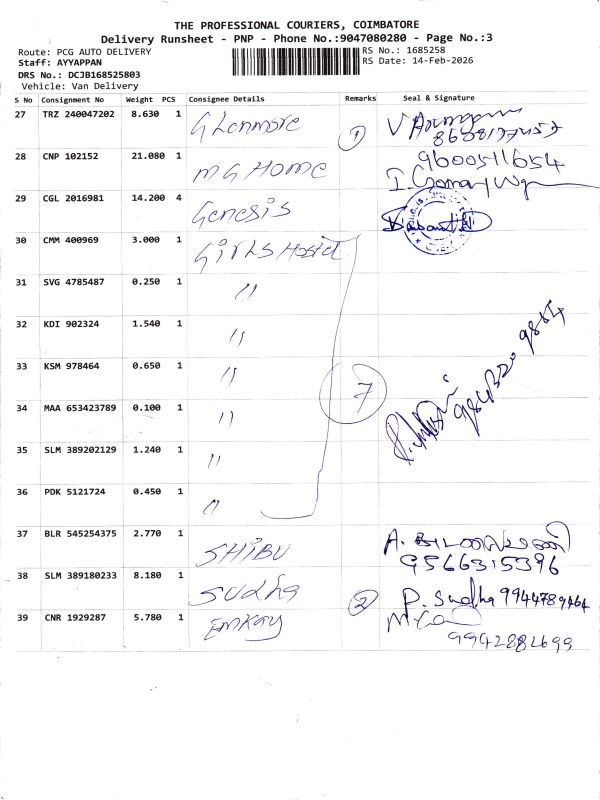 THE PROFESSIONAL COURIERS, COIMBATORE
Delivery Runsheet - PNP - Phone No.:9047080280 - Page No.:3
Route: PCG AUTO DELIVERY RS No.: 1685258
Staff: AYYAPPAN RS Date: 14-Feb-2026
DRS No.: DCJB168525803
Vehicle: Van Delivery
S No Consignment No Weight PCS Consignee Details Remarks Seal & Signature
27 TRZ 240047202 8.630 1 Glenmore 1
28 CNP 102152 21.080 1 MG Home 9600511654
29 CGL 2016981 14.200 4 Genesis
30 CMM 400969 3.000 1 Girls Hostel
31 SVG 4785487 0.250 1 "
32 KDI 902324 1.540 1 "
33 KSM 978464 0.650 1 " 7
34 MAA 653423789 0.100 1 "
35 SLM 389202129 1.240 1 "
36 PDK 5121724 0.450 1 "
37 BLR 545254375 2.770 1 SHIBU A.
9566315396
38 SLM 389180233 8.180 1 Sudha 2 P. Sudha 9944789464
39 CNR 1929287 5.780 1 Emkay
9942882699